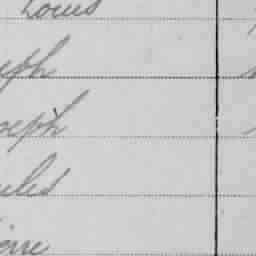 Louis
eph
oseph
ules
ierre